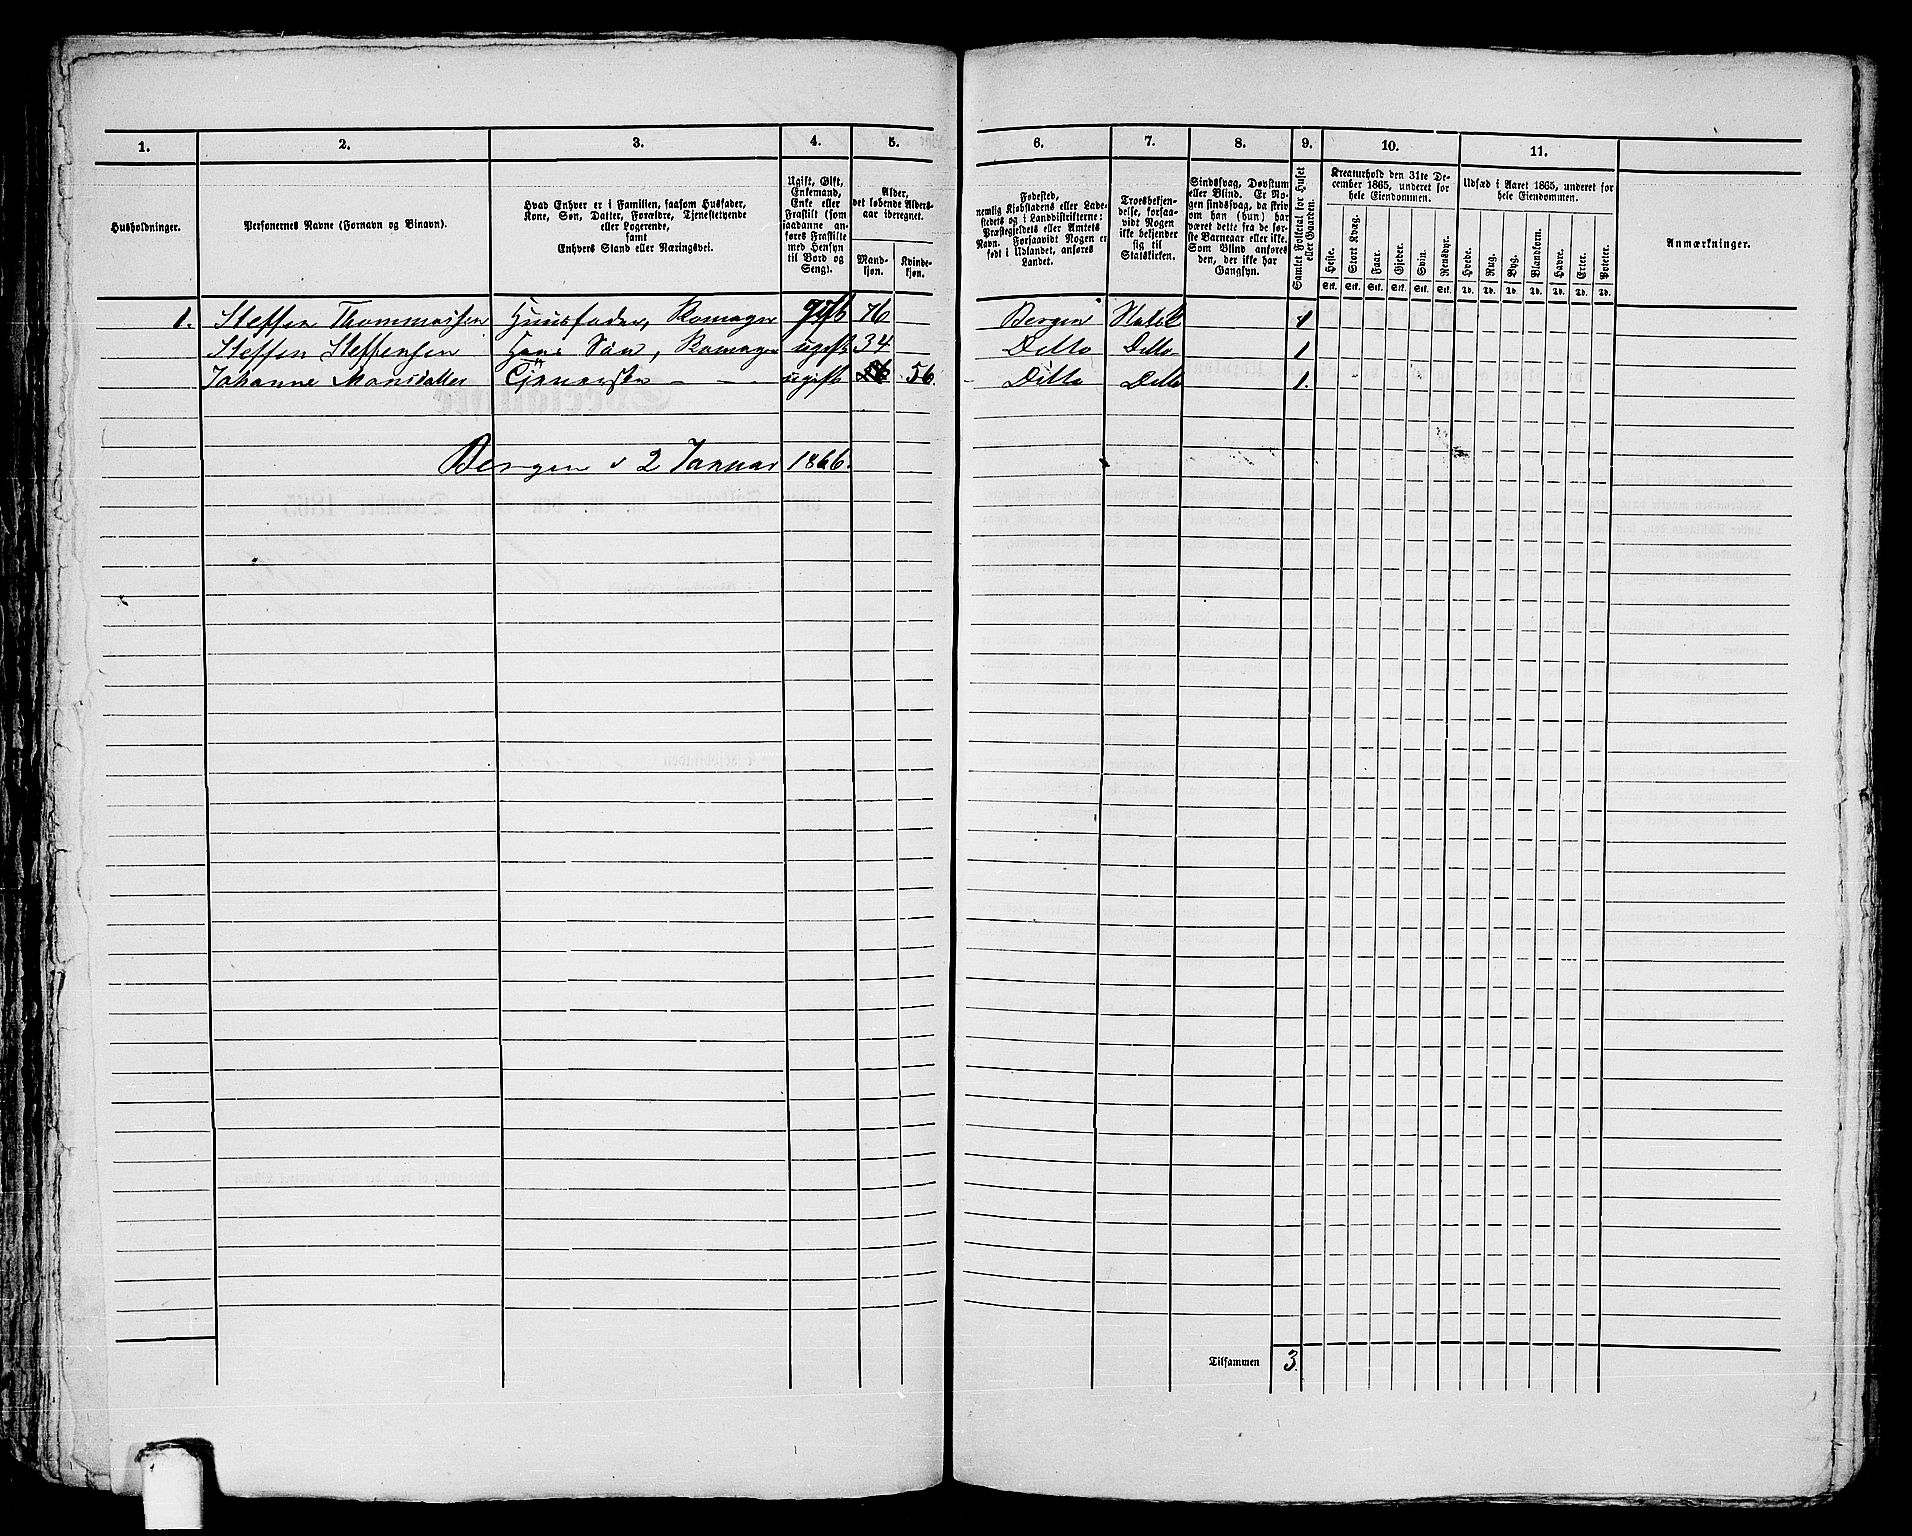 1. 2. 3. 4. 5. 6. 7. 8. 9. 10. 11.
Husholdninger.
Personernes Navne (Fornavn og Binavn).
Hvad Enhver er i Familien, saasom Husfader,
Kone, Søn, Datter, Forældre, Tjenestetyende
eller Logerende,
samt
Enhvers Stand eller Næringsvei.
Ugift, Gift,
Enkemand,
Enke eller
Fraskilt (som
saadanne an-
føres Fraskilte
med Hensyn
til Bord og
Seng).
Alder,
det løbende Alders-
aar iberegnet.
Mand-
kjøn.
Kvinde-
kjøn.
Fødested,
nemlig Kjøbstadens eller Lade-
stedets og i Landdistrikterne:
Præstegjeldets eller Amtets
Navn. Forsaavidt Nogen er
født i Udlandet, anføres
Landet.
Troesbekjen-
delse, forsaa-
vidt Nogen
ikke bekjender
sig til
Statskirken.
Sindssvag, Døvstum
eller Blind. Er No-
gen sindssvag, da skriv
om han (hun) har
været dette fra de før-
ste Barneaar eller ikke.
Som Blind anføres
den, der ikke har
Gangsyn.
Samlet Folketal for Huset
eller Gaarden.
Kreaturhold den 31te De-
cember 1865, underet for
hele Eiendommen.
Heste. Stort Kvæg. Faar. Gjeder. Svin. Rensdyr.
Stk. Stk. Stk. Stk. Stk. Stk.
Udsæd i Aaret 1865, underet for
hele Eiendommen.
Hvede. Rug. Byg. Blandkorn. Havre. Erter. Poteter.
Td. Td. Td. Td. Td. Td. Td.
Anmærkninger.
1. Steffen Thommassen Huusfader, gift 76 Bergen Statsk 1
Steffen Steffensen Hans Søn, ugift 34 Ditto Ditto 1
Johanne Monsdatter ugift 56 Ditto Ditto 1.
Bergen d 2 Januar 1866.
Tilsammen 3.